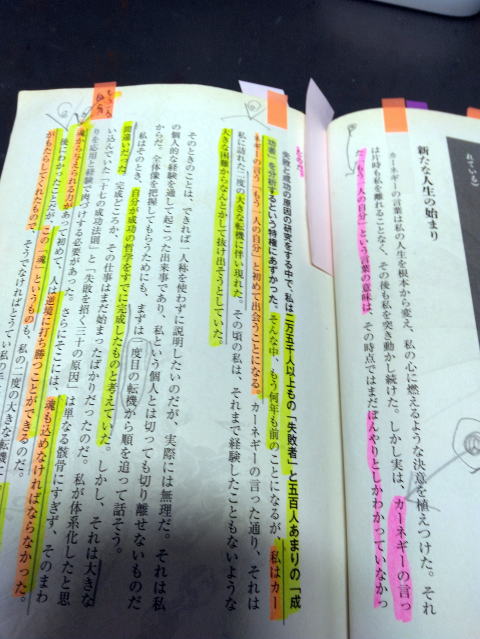 れている)
新たな人生の始まり
カーネギーの言葉は私の人生を根本から変え、私の心に燃えるような決意を植えつけた。それ
は片時も私を離れることなく、その後も私を突き動かし続けた。しかし実は、カーネギーの言っ
た「もう一人の自分」という言葉の意味は、その時点ではまだぼんやりとしかわかっていなかっ
失敗と成功の原因の研究をする中で、私は二万五千人以上もの「失敗者」と五百人あまりの「成
功者」を分析するという特権にあずかった。そんな中、もう何年も前のことになるが、私はカー
ネギーの言う「もう一人の自分」と初めて出会うことになる。カーネギーの言った通り、それは
私に訪れた二度の大きな転機に伴い現れた。その頃の私は、それまで経験したこともないような
大きな困難からなんとかして抜け出そうとしていた。
そのときのことは、できれば一人称を使わずに説明したいのだが、実際には無理だ。それは私
の個人的な経験を通して起こった出来事であり、私という個人とは切っても切り離せないものだ
からだ。全体像を把握してもらうためにも、まずは一度目の転機から順を追って話そう。
私はそのとき、自分が成功の哲学をすでに完成したものと考えていた。しかし、それは大きな
間違いだった。完成どころか、その仕事はまだ始まったばかりだったのだ。私が体系化したと思
い込んでいた「十七の成功法則」と「失敗を招く三十の原因」は単なる骸骨にすぎず、そのまわ
りを応用と経験で肉づけする必要があった。さらにそこには、魂も込めなければならなかった。
魂から与えられる力があって初めて、人は逆境に打ち勝つことができるのだ。
後にわかったことだが、この「魂」というものも、私の二度の大きな転機に
がもたらしてくれたもので、そうでなければとうてい